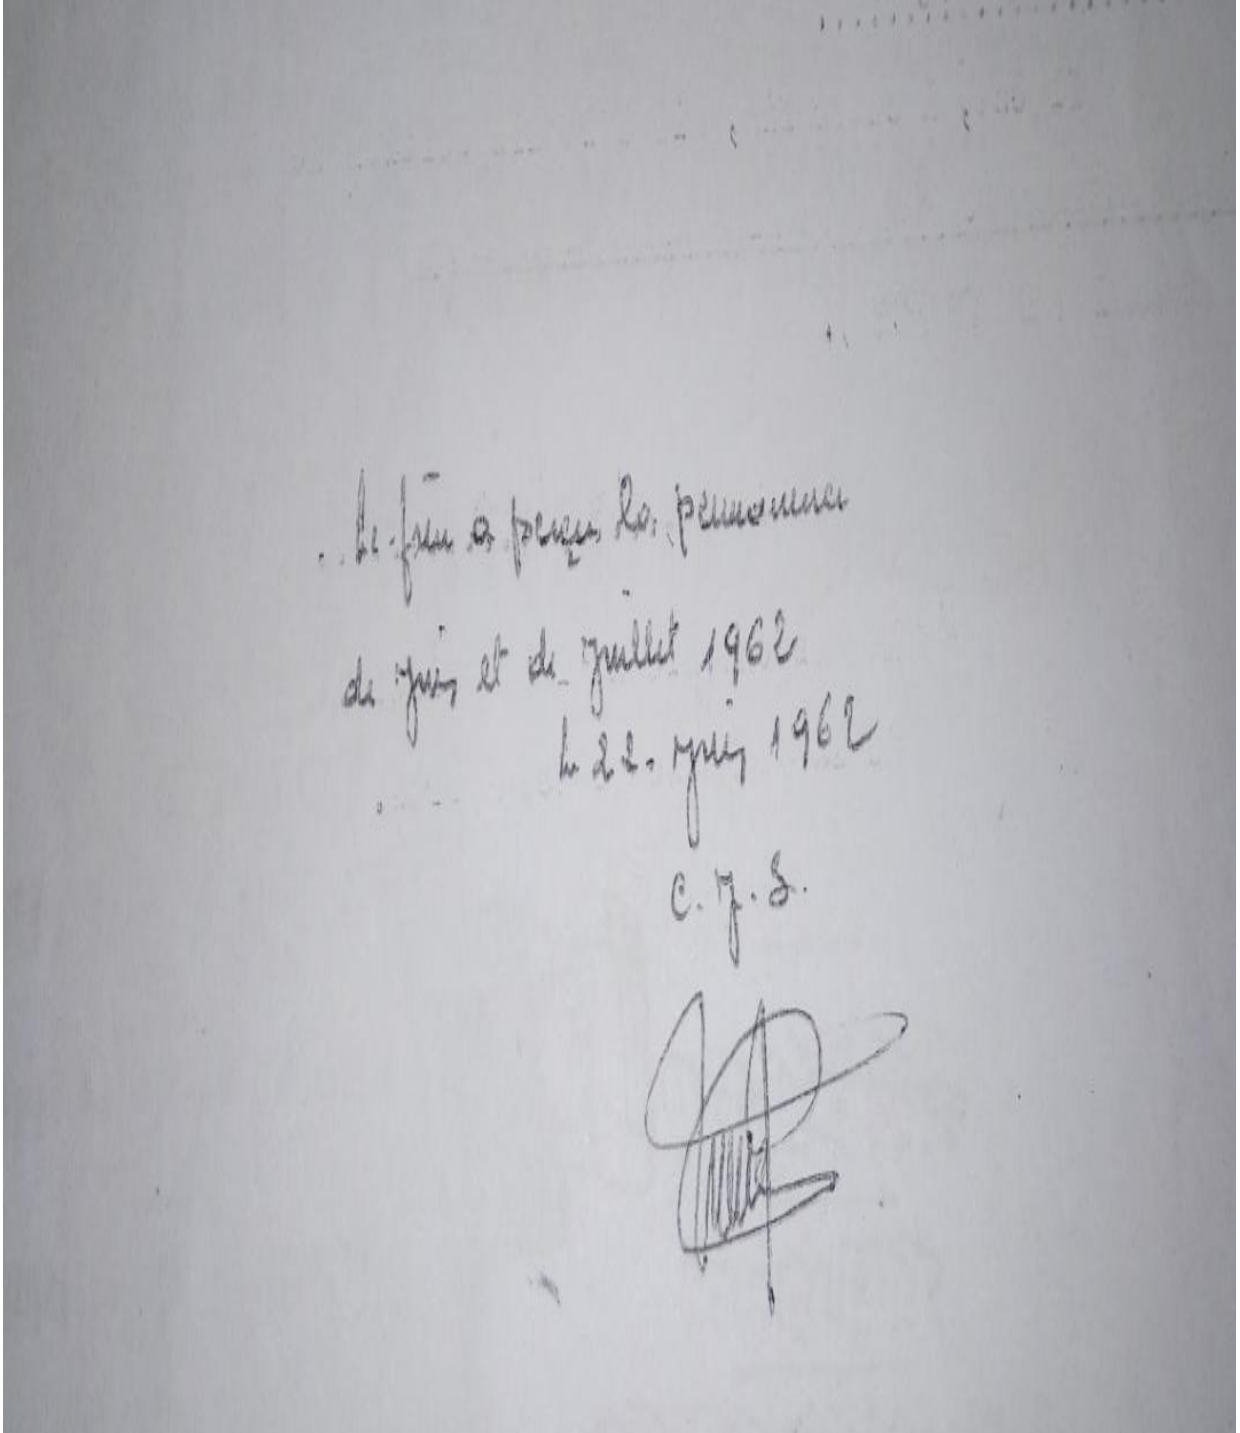 Le frère a perçu la permanence
de juin et de juillet 1962
le 22 juin 1962
C. J. S.